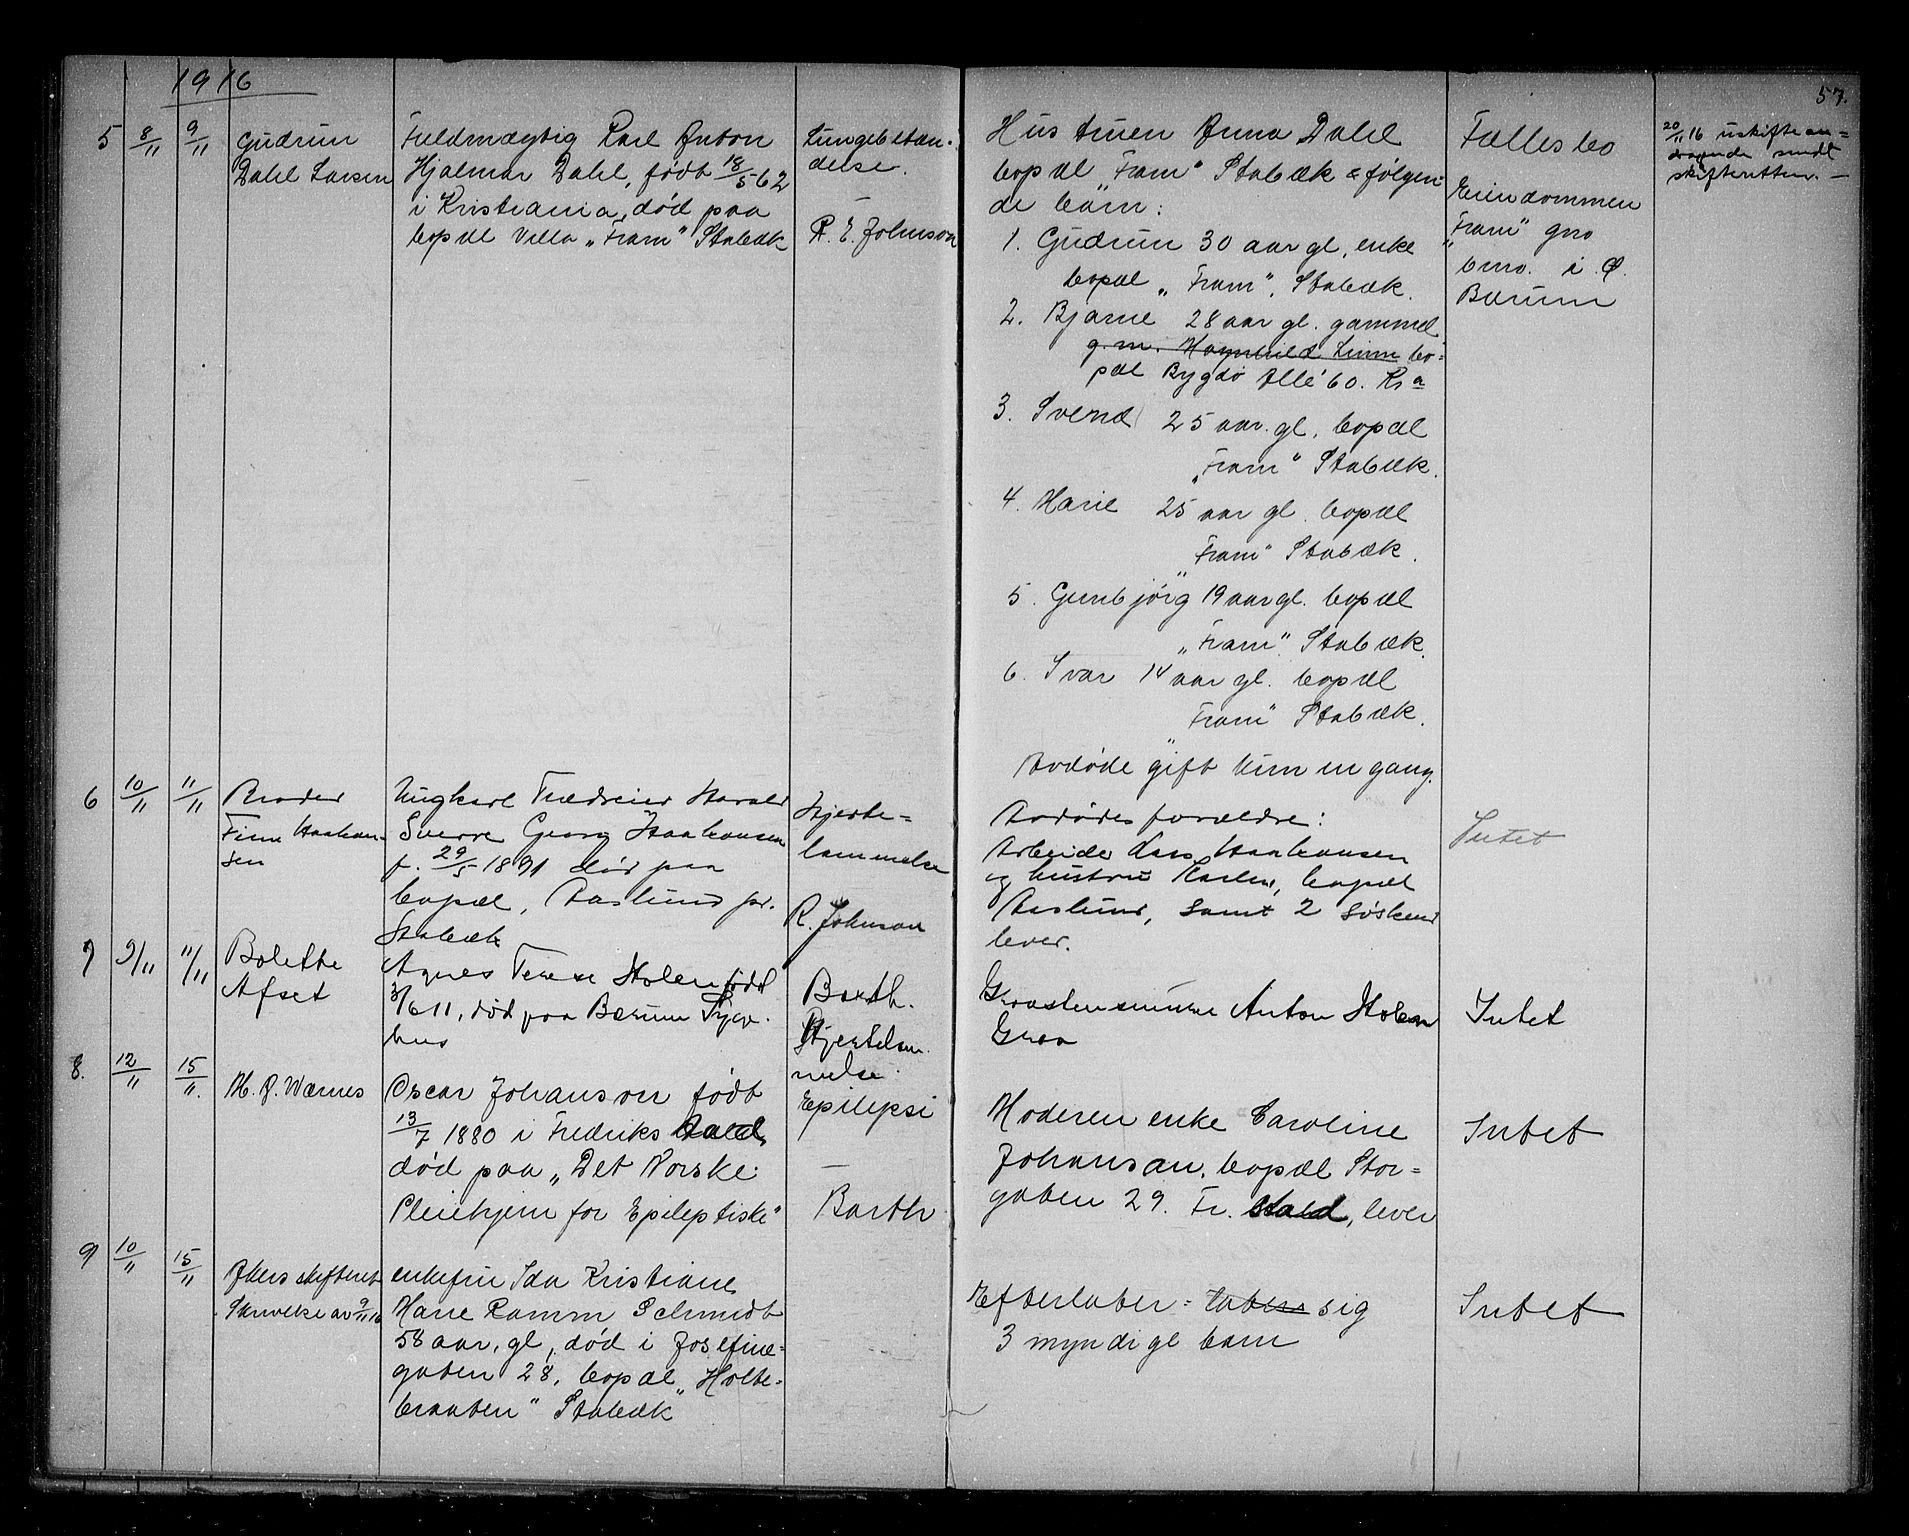 1916
57.
5 8/11 9/11 Gudrun
Dahl Larsen
Fuldmægtig Karl Anton
Hjalmar Dahl, født 18/5 62
i Kristiania, død paa
bopæl Villa „Fram" Stabæk
Lungebetæn-
delse.
R. E. Johnson
Hustruen Anna Dahl
bopæl „Fram" Stabæk & følgen-
de barn:
1. Gudrun 30 aar gl, enke
bopæl „Fram". Stabæk.
2. Bjarne 28 aar gl. gammel
g. m. bo-
pæl Bygdø Allé 60. Kra
3. Svend 25 aar. gl, bopæl
„Fram" Stabæk.
4. Marie 25 aar gl. bopæl
„Fram" Stabæk.
5. Gunbjørg 19 aar gl. bopæl
„Fram". Stabæk.
6. Ivar 14 aar gl. bopæl
„Fram" Stabæk.
Avdøde gift kun en gang.
Fællesbo
Eiendommen
„Fram" gno
bno. i Ø.
Bærum
20/11 16 uskiftean=
dragende sendt
skifteretten. —
6 10/11 11/11 Broder
Finn Haakon-
sen
Ungkarl Fredrik Harald
Sverre Georg Haakonsen
f. 29/5 1891 død paa
bopæl, Aaslund pr.
Stabæk
Hjerte=
lammelse
R. Johnson
Avdødes forældre:
Arbeider Lars Haakonsen
og hustru Karen, bopæl
Aaslund, samt 2 søskend
lever.
Intet
7 9/11 11/11 Bolette
Afset
Agnes Terese Holen født
3/6 11, død paa Bærum Syge-
hus
Barth.
Hjertelam-
melse.
Graastensmurer Anton Holen
Intet
8. 12/11 15/11. M. A. Wærnes
Oscar Johanson født
13/7 1880 i Fredrikshald,
død paa „Det Norske
Pleiehjem for Epileptiske"
Epilepsi
—
Barth
Moderen enke Caroline
Johansan, bopæl Stor=
gaten 29. Fr. hald, lever
Intet
9 10/11 15/11 Akers skifteret
Skrivelse av 9/11 16
enkefru Ida Kristiane
Marie Ramm Schmidt
58 aar, gl, død i Josefine-
gaten 28, bopæl „Holte-
braaten" Stabæk
Efterlater = sig
3 myndige barn
Intet